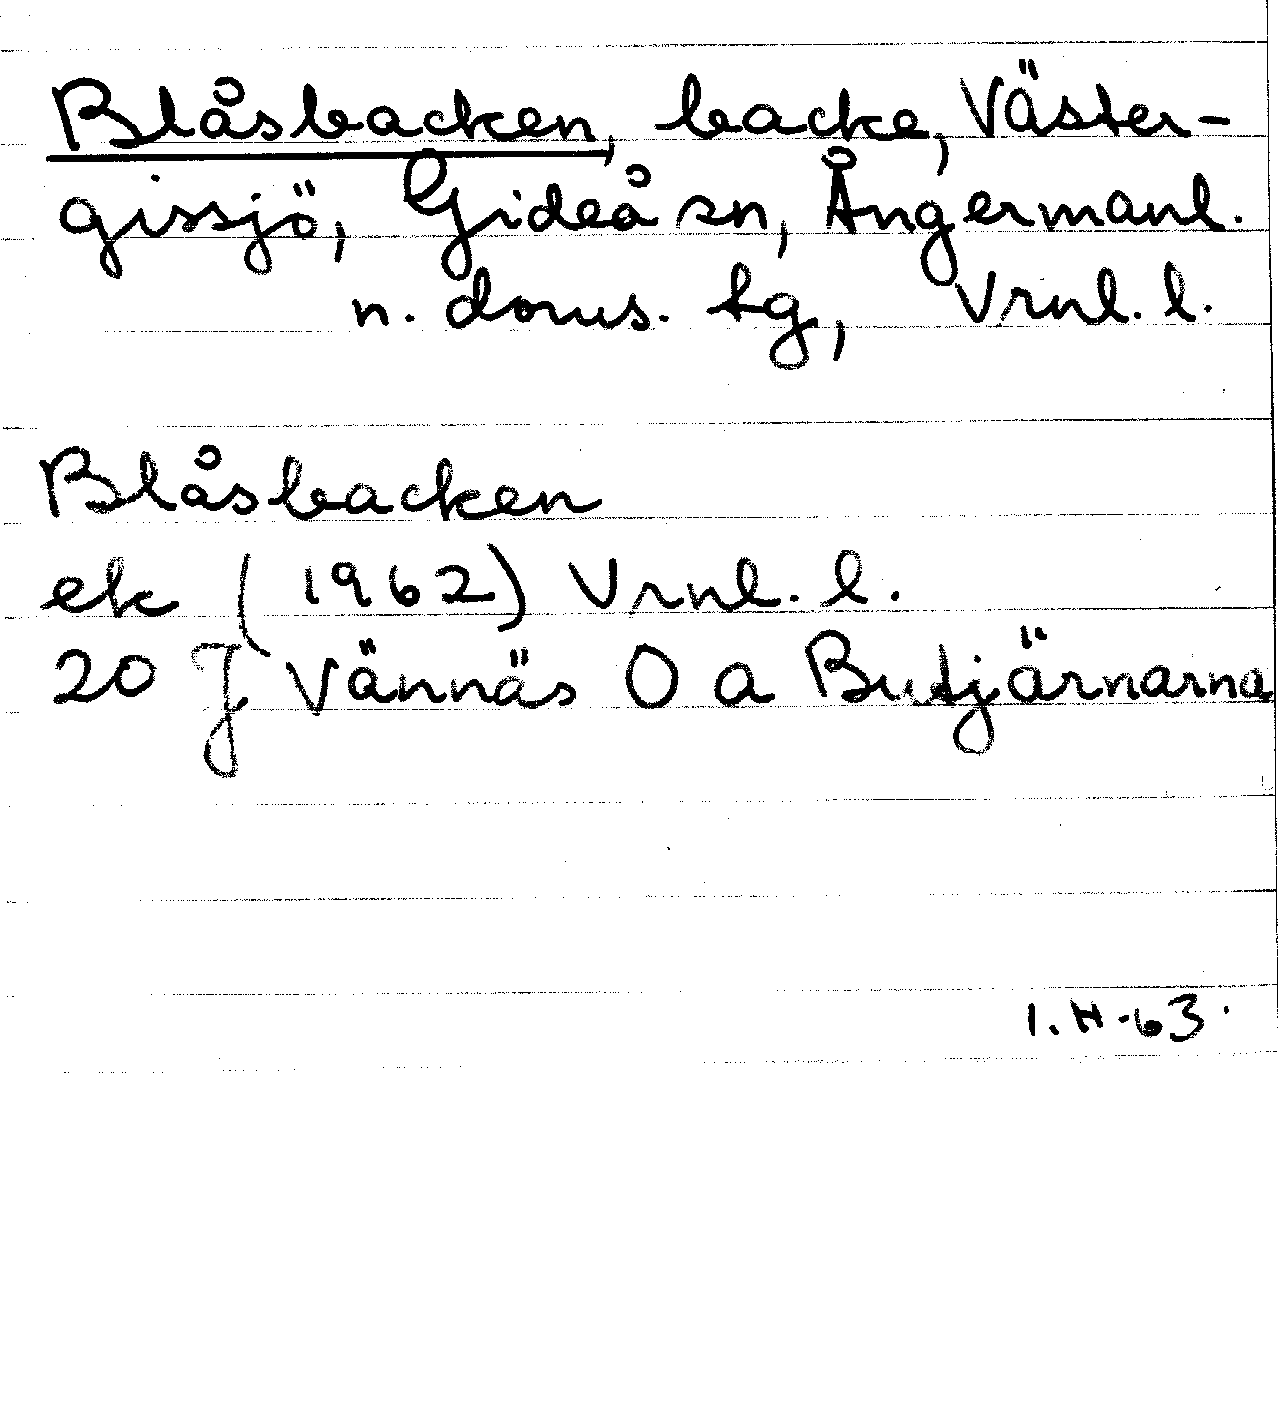 Blåsbacken, backe, Väster-
gissjö, Gideå sn, Ångermanl.
n. doms. tg, Vrnl. l.
Blåsbacken
ek (1962) Vrnl. l.
20 J Vännäs O a Butjärnarna
1.H.-63.